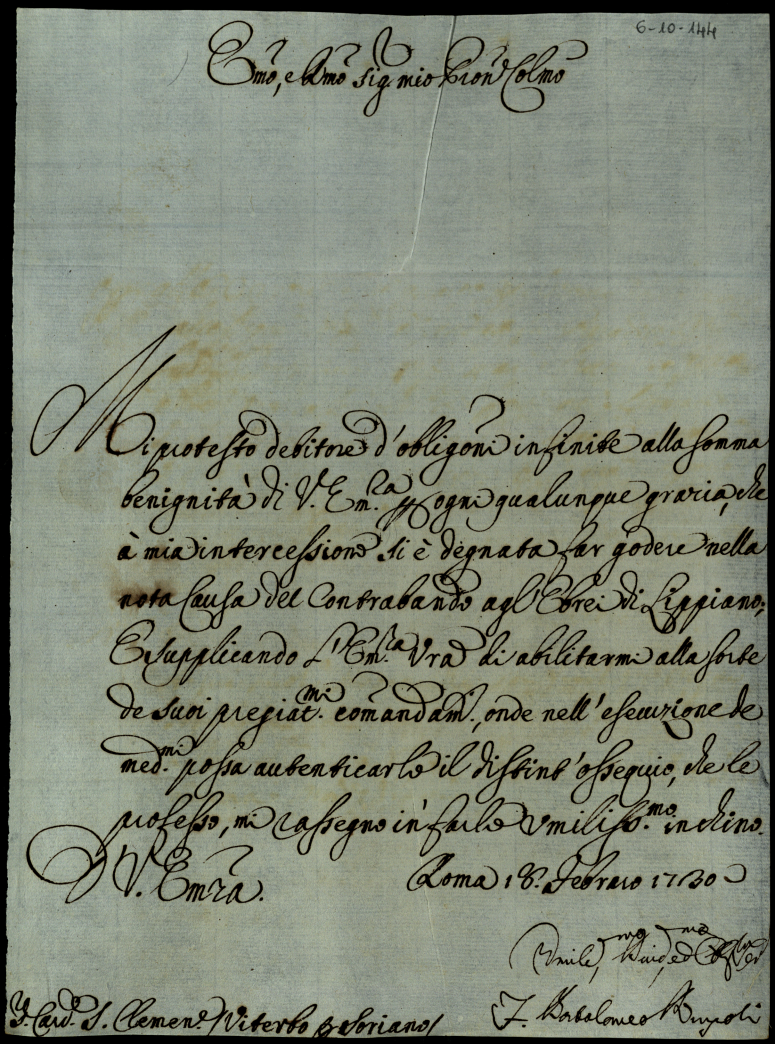 6-10-144
Emo, e Rmo Sig. mio Pron Colmo
Mi protesto debitore d'obligoni infinite alla somma
benignità di V. Em.ra ogni qualunque grazia, che
à mia intercessione si è degnata far godere nella
nota Causa del Contrabando agl'Ebrei di Lippiano;
E supplicando L'Em.ra Vra di abilitarmi alla sorte
de suoi pregiat.mi comandam.i, onde nell'esecuzione de
med.mi possa autenticarle il distint'ossequio, che le
professo, mi rassegno in farle Vmiliss.mo inchino.
D V. Emza.
Roma 18. Febraro 1730
Vmile,
F. Bartolomeo Ruspoli
S. Clemen.e Viterbo Soriano